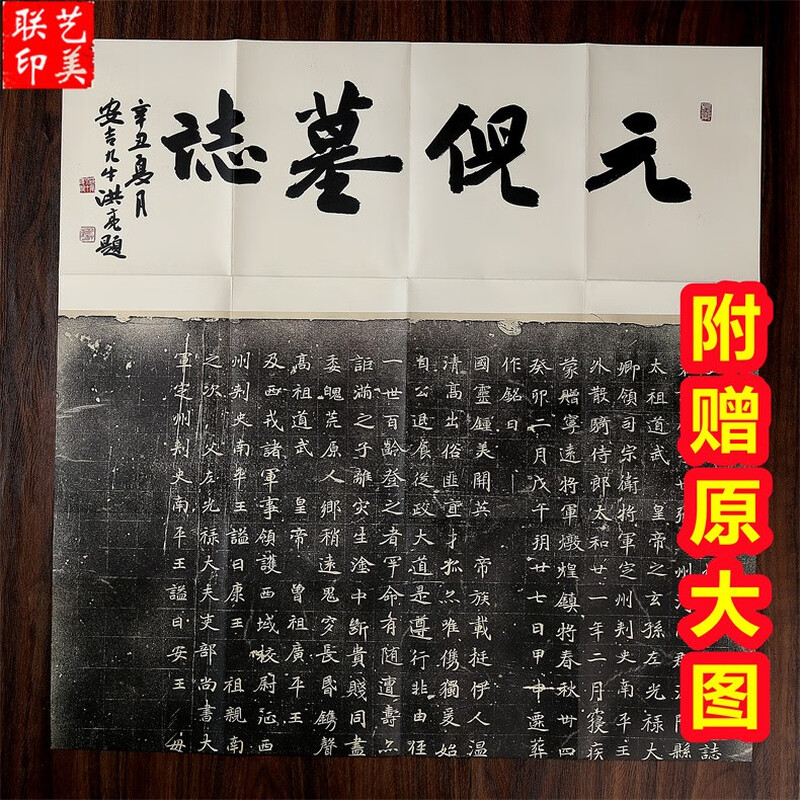 艺美
联印
元倪墓誌
辛丑夏月
安吉九牛洪亮題
附赠原大图
太祖道武 皇帝之玄孫左光禄大
卿領司宗衛将軍定州刺史南平王
外散騎侍郎太和廿一年二月寝疾
蒙贈寧遠将軍燉煌鎮将春秋卌四
癸卯二月戊午玥廿七日甲申遷葬
作銘曰
國靈鍾美開英 帝族載挺伊人温
清高出俗匪宜尒唯儁獨爰始
自公退食從政大道是尊行非由徑
一世百齡登之者罕命有随遭壽尒
詎滿之子離灾生塗中斷貴賤同盡
委魄荒原人鄉稍遠鬼穸長昏鐫聲
高祖道武 皇帝 曾祖廣平王
及西戎諸軍事領護西域校尉西
州刺史南平王謚曰康王 祖親南
之次 父左光禄大夫吏部尚書大
軍定州刺史南平王謚曰安王 毋